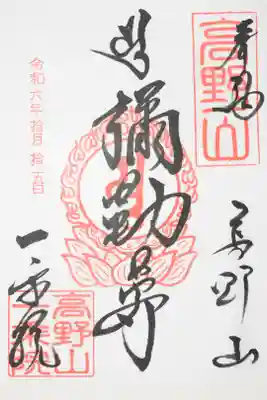 奉拝
高野山
高野山
彌勒尊
令和六年拾月拾五日
一乗院
高野山
一乗院